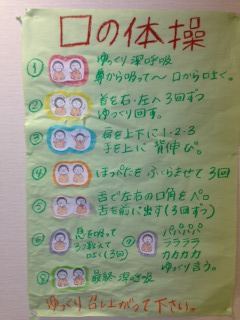 口の体操
① ゆっくり深呼吸
鼻から吸って〜口から吐く。
② 首を右・左へ3回ずつ
ゆっくり回す。
③ 肩を上下に1・2・3
手を上に背伸び。
④ ほっぺたをふくらませて3回
⑤ 舌で左右の口角をペロ
舌を前に出す(3回ずつ)
⑥ 息を吸って
3つ数えて
はく(3回)
⑦ パパパパパ
ララララ
カカカカ
ゆっくり言う。
⑧ 最終深呼吸
ゆっくり召し上がって下さい。